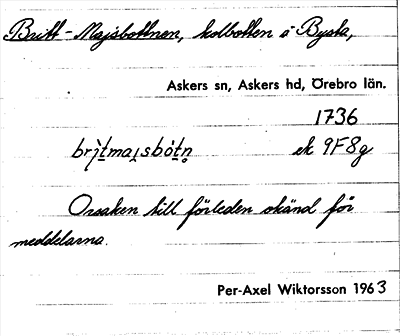 Britt-Majsbottnen, kolbotten å Bysta,
Askers sn, Askers hd, Örebro län.
1736
brı̀t̲mai̯sbòt̲n̥ ek 9F8g
Orsaken till förleden okänd för
meddelarna.
Per-Axel Wiktorsson 1963